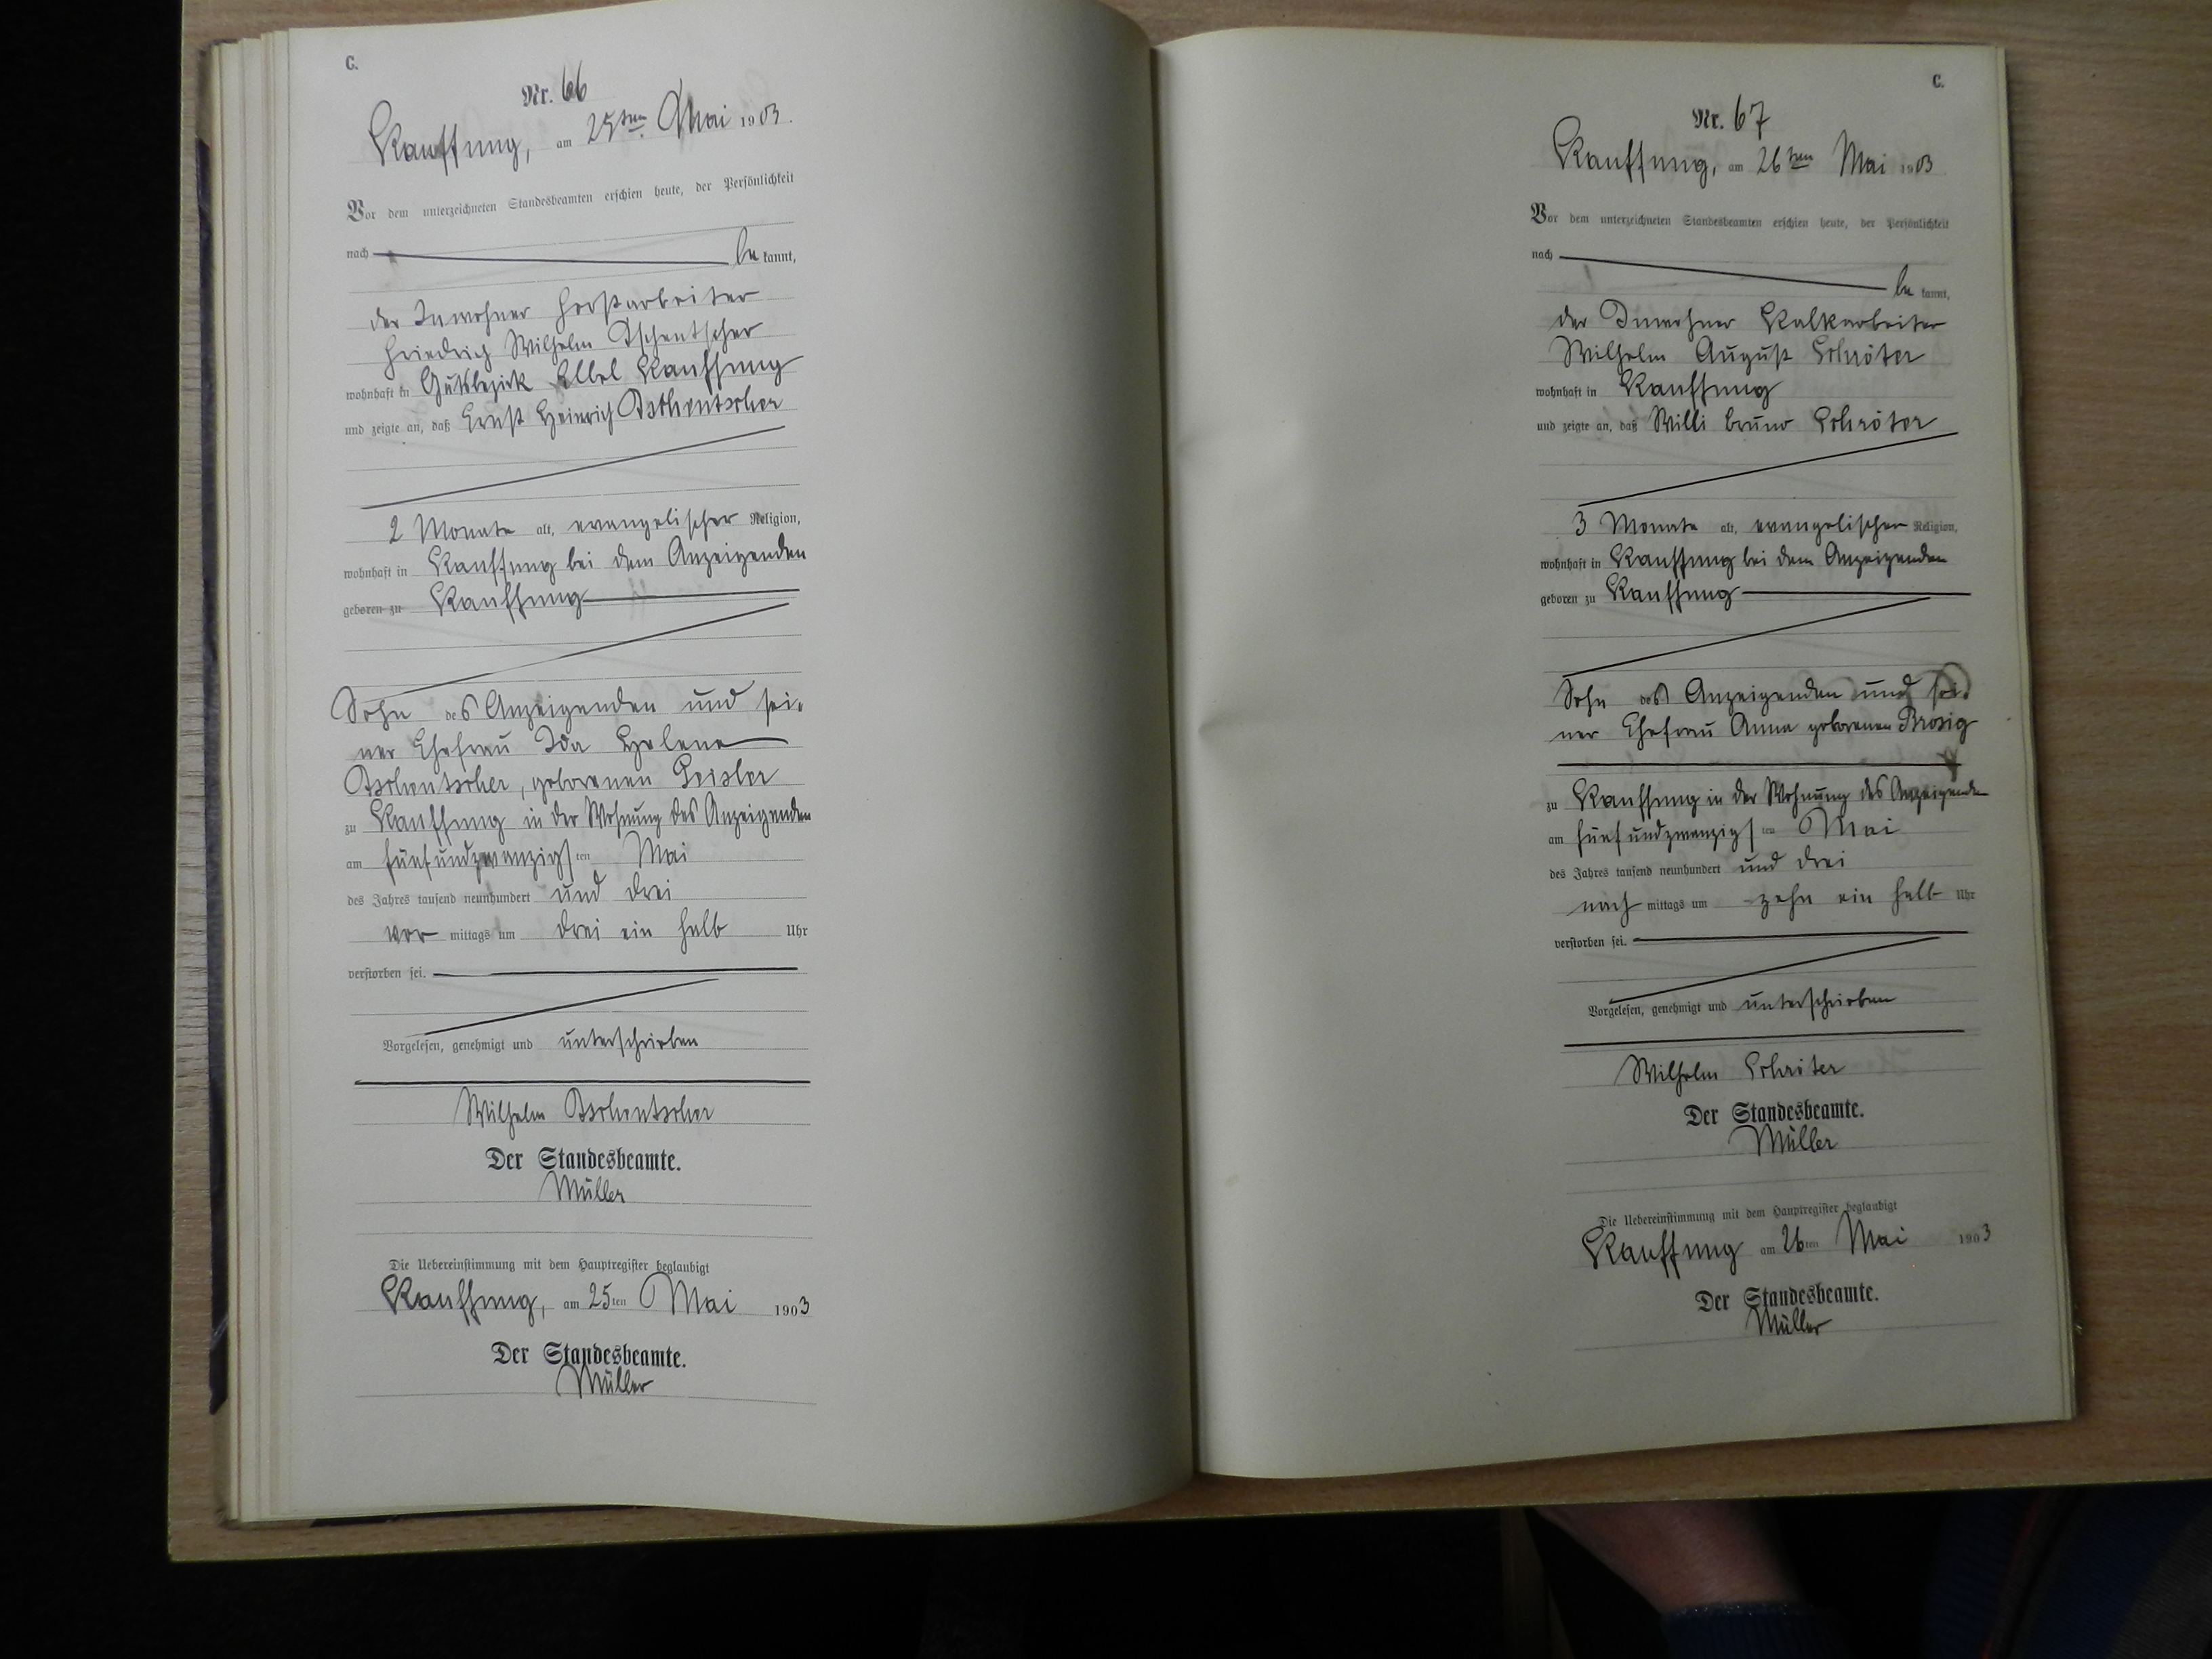 C.
Nr. 66
Kauffung, am 25ten Mai 1903.
Vor dem unterzeichneten Standesbeamten erschien heute, der Persönlichkeit
nach be kannt,
der Inwohner Forstarbeiter
Friedrich Wilhelm Tschentscher
wohnhaft in Gutsbezirk Elbel Kauffung
und zeigte an, daß Ernst Heinrich Tschentscher
2 Monate alt, evangelischer Religion,
wohnhaft in Kauffung bei dem Anzeigenden
geboren zu Kauffung
Sohn des Anzeigenden und sei-
ner Ehefrau Ida Helene
Tschentscher, geborenen Geisler
zu Kauffung in der Wohnung des Anzeigenden
am fünfundzwanzigsten Mai
des Jahres tausend neunhundert und drei
Vor mittags um drei ein halb Uhr
verstorben sei.
Vorgelesen, genehmigt und unterschrieben
Wilhelm Tschentscher
Der Standesbeamte.
Müller
Die Uebereinstimmung mit dem Hauptregister beglaubigt
Kauffung, am 25ten Mai 1903
Der Standesbeamte.
Müller
C.
Nr. 67
Kauffung, am 26ten Mai 1903
Vor dem unterzeichneten Standesbeamten erschien heute, der Persönlichkeit
nach be kannt,
der Inwohner Kalkarbeiter
Wilhelm August Schröter
wohnhaft in Kauffung
und zeigte an, daß Willi Bruno Schröter
3 Monate alt, evangelischer Religion,
wohnhaft in Kauffung bei dem Anzeigenden
geboren zu Kauffung
Sohn des Anzeigenden und sei-
ner Ehefrau Anna geborenen Brosig
zu Kauffung in der Wohnung des Anzeigenden
am fünfundzwanzigsten Mai
des Jahres tausend neunhundert und drei
nach mittags um zehn ein halb Uhr
verstorben sei.
Vorgelesen, genehmigt und unterschrieben
Wilhelm Schröter
Der Standesbeamte.
Müller
Die Uebereinstimmung mit dem Hauptregister beglaubigt
Kauffung am 26ten Mai 1903
Der Standesbeamte.
Müller